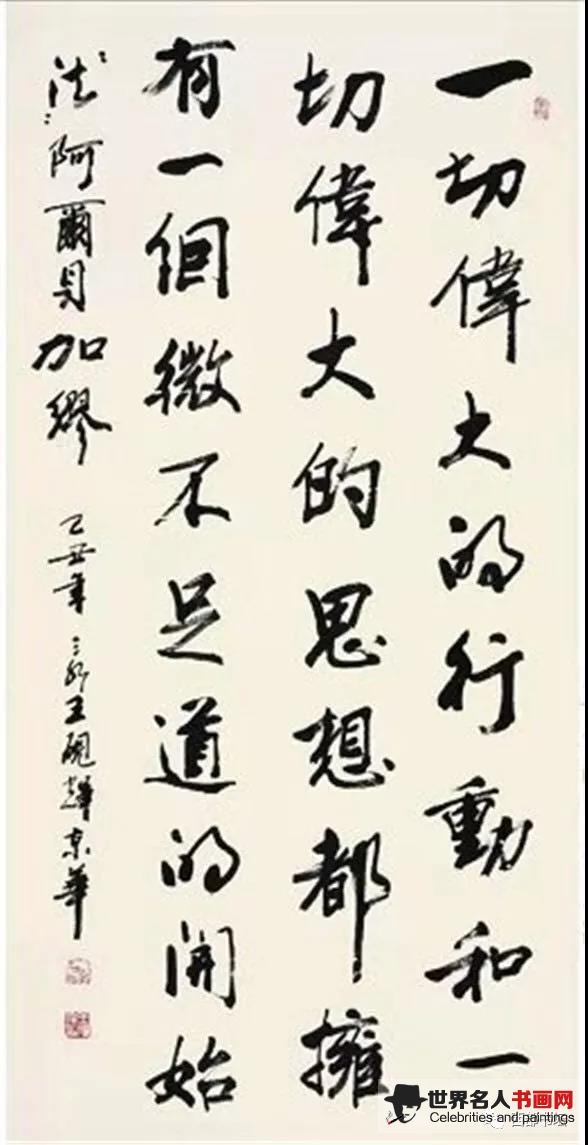 一切偉大的行動和一
切偉大的思想都擁
有一個微不足道的開始
法 阿爾貝加繆
己丑年 王硯輝京華
世界名人书画网
Celebrities and paintings